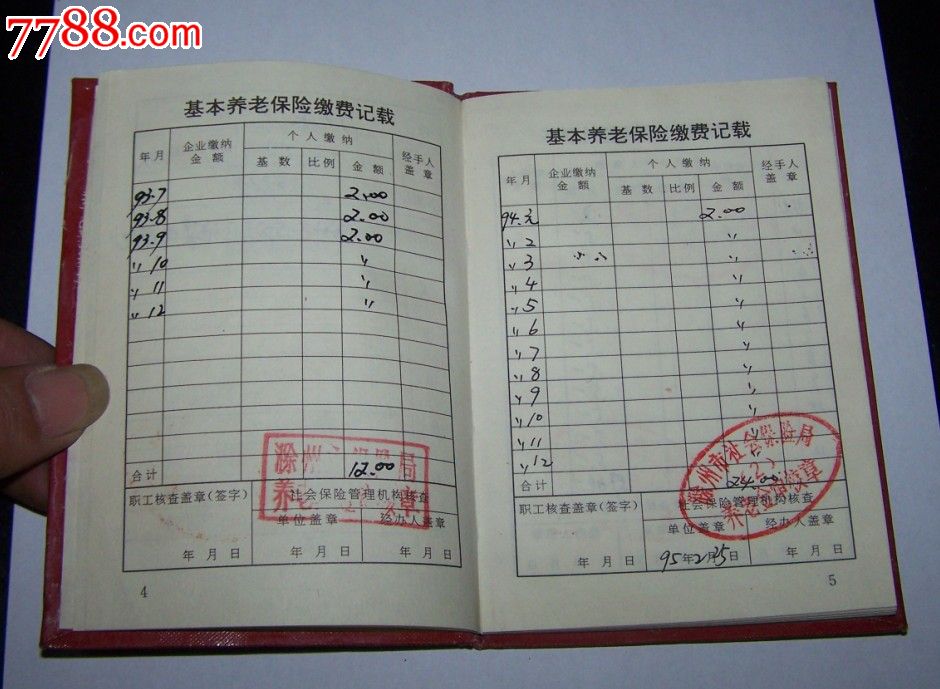 7788.com
基本养老保险缴费记载
年月 企业缴纳金额 个人缴纳 经手人盖章
基数 比例 金额
93.7 2.00
93.8 2.00
93.9 2.00
〃 10 〃
〃 11 〃
〃 12 〃
合计 12.00
滁州
养老
职工核查盖章(签字) 社会保险管理机构核查
单位盖章 经办人盖章
年 月 日 年 月 日
4
基本养老保险缴费记载
年月 企业缴纳金额 个人缴纳 经手人盖章
基数 比例 金额
94.元 2.00
〃 2 〃
〃 3 〃
〃 4 〃
〃 5 〃
〃 6 〃
〃 7 〃
〃 8 〃
〃 9 〃
〃 10 〃
〃 11 〃
〃 12 〃
合计 24.00
滁州市社会保险局
养老
职工核查盖章(签字) 社会保险管理机构核查
单位盖章 经办人盖章
年 月 日 95年2月25日
5